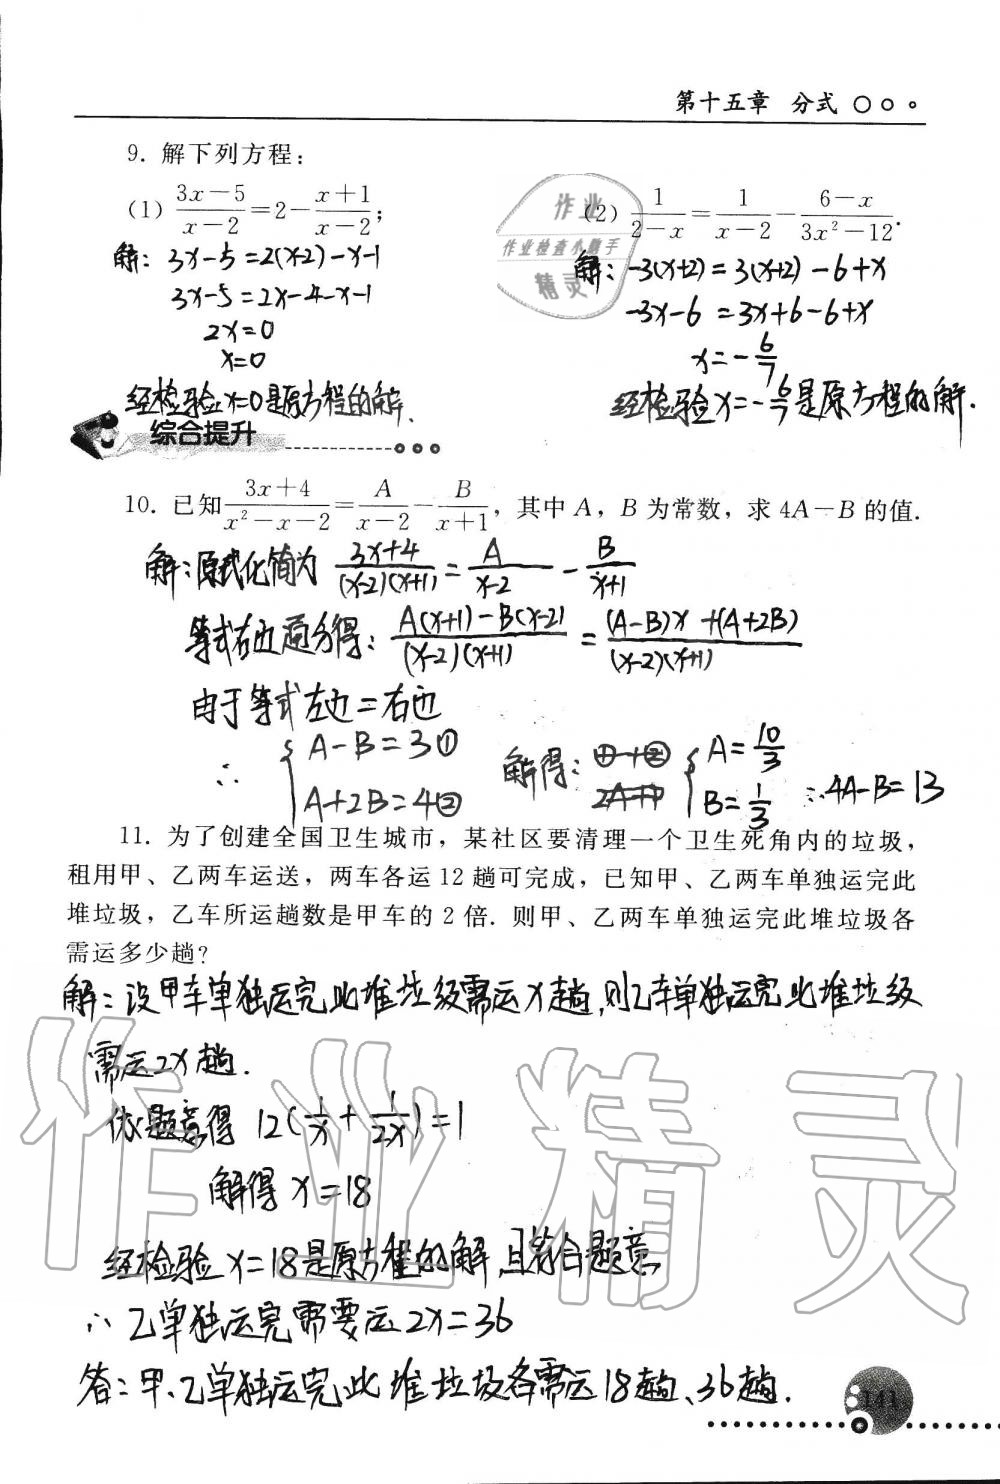 第十五章 分式
9. 解下列方程:
(1) (3x-5)/(x-2)=2-(x+1)/(x-2);
(2) 1/(2-x)=1/(x-2)-(6-x)/(3x²-12).
作业
作业检查小助手
精灵
解: 3x-5=2(x-2)-x-1
3x-5=2x-4-x-1
2x=0
x=0
经检验x=0是原方程的解.
解: -3(x+2)=3(x+2)-6+x
-3x-6=3x+6-6+x
x=-6/7
经检验x=-6/7是原方程的解.
综合提升
10. 已知(3x+4)/(x²-x-2)=A/(x-2)-B/(x+1), 其中A, B为常数, 求4A-B的值.
解:原式化简为 (3x+4)/((x-2)(x+1))=A/(x-2)-B/(x+1)
等式右边通分得: (A(x+1)-B(x-2))/((x-2)(x+1))=((A-B)x+(A+2B))/((x-2)(x+1))
由于等式左边=右边
∴ { A-B=3①
A+2B=4②
解得: { A=10/3
B=1/3 ∴4A-B=13
11. 为了创建全国卫生城市, 某社区要清理一个卫生死角内的垃圾,
租用甲、乙两车运送, 两车各运12趟可完成, 已知甲、乙两车单独运完此
堆垃圾, 乙车所运趟数是甲车的2倍. 则甲、乙两车单独运完此堆垃圾各
需运多少趟?
解:设甲车单独运完此堆垃圾需运x趟,则乙车单独运完此堆垃圾
需运2x趟.
依题意得 12(1/x+1/2x)=1
解得 x=18
经检验 x=18是原方程的解,且符合题意
∴乙单独运完需要运2x=36
答:甲、乙单独运完此堆垃圾各需运18趟、36趟.
作业精灵
141